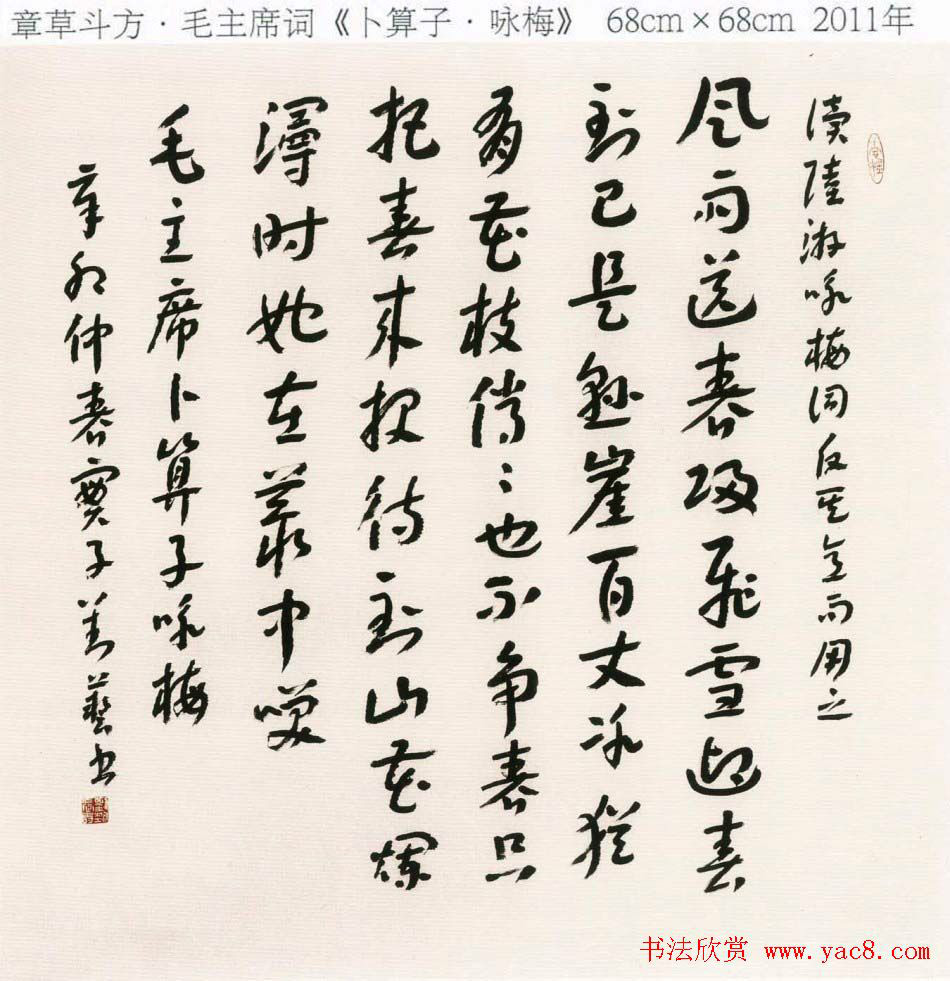 章草斗方·毛主席词《卜算子·咏梅》 68cm×68cm 2011年
读陸游咏梅词反其意而用之
风雨送春归飛雪迎春
到已是悬崖百丈冰犹
有花枝俏〻也不争春只
把春来报待到山花烂
漫时她在叢中笑
毛主席卜算子咏梅
辛卯仲春 藝书
书法欣赏 www.yac8.com